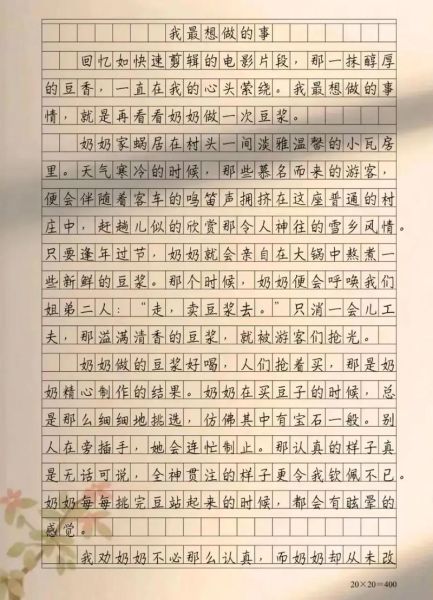 我最想做的事
回忆如快速剪辑的电影片段，那一抹醇厚
的豆香，一直在我的心头萦绕。我最想做的事
情，就是再看看奶奶做一次豆浆。
奶奶家蜗居在村头一间淡雅温馨的小瓦房
里。天气寒冷的时候，那些慕名而来的游客，
便会伴随着客车的鸣笛声拥挤在这座普通的村
庄中，赶趟儿似的欣赏那令人神往的雪乡风情。
只要逢年过节，奶奶就会亲自在大锅中熬煮一
些新鲜的豆浆。那个时候，奶奶便会呼唤我们
姐弟二人：“走，卖豆浆去。”只消一会儿工
夫，那溢满清香的豆浆，就被游客们抢光。
奶奶做的豆浆好喝，人们抢着买，那是奶
奶精心制作的结果。奶奶在买豆子的时候，总
是那么细细地挑选，仿佛其中有宝石一般。别
人在旁插手，她会连忙制止。那认真的样子真
是无话可说，全神贯注的样子更令我钦佩不已。
奶奶每每挑完豆站起来的时候，都会有眩晕的
感觉。
我劝奶奶不必那么认真，而奶奶却从未改
20×20=400